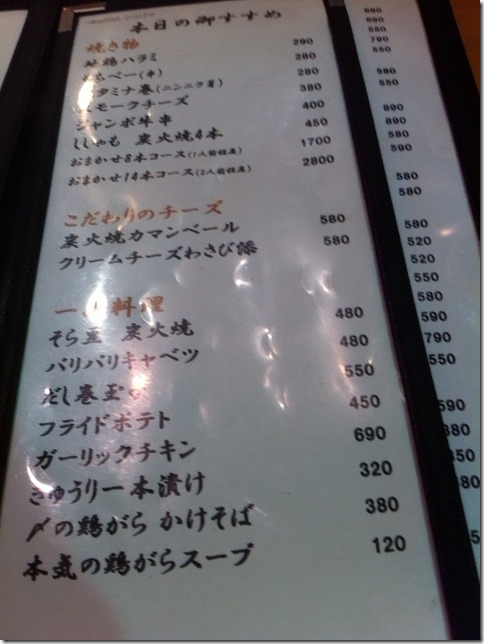 本日の御すすめ
焼き物
地鶏ハラミ 290
280
タミナ巻(ニンニク芽) 280
スモークチーズ 380
ジャンボ牛串 400
ししゃも 炭火焼4本 450
おまかせ8本コース(1人前程度) 1700
おまかせ14本コース(2人前程度) 2800
こだわりのチーズ
炭火焼カマンベール 580
クリームチーズわさび添 580
一品料理
そら豆 炭火焼 480
バリバリキャベツ 480
だし巻玉子 550
フライドポテト 450
ガーリックチキン 690
きゅうり一本漬け 320
〆の鶏がら かけそば 380
本気の鶏がらスープ 120
580
550
790
550
580
550
890
890
580
590
580
580
580
520
520
550
580
590
790
550
590